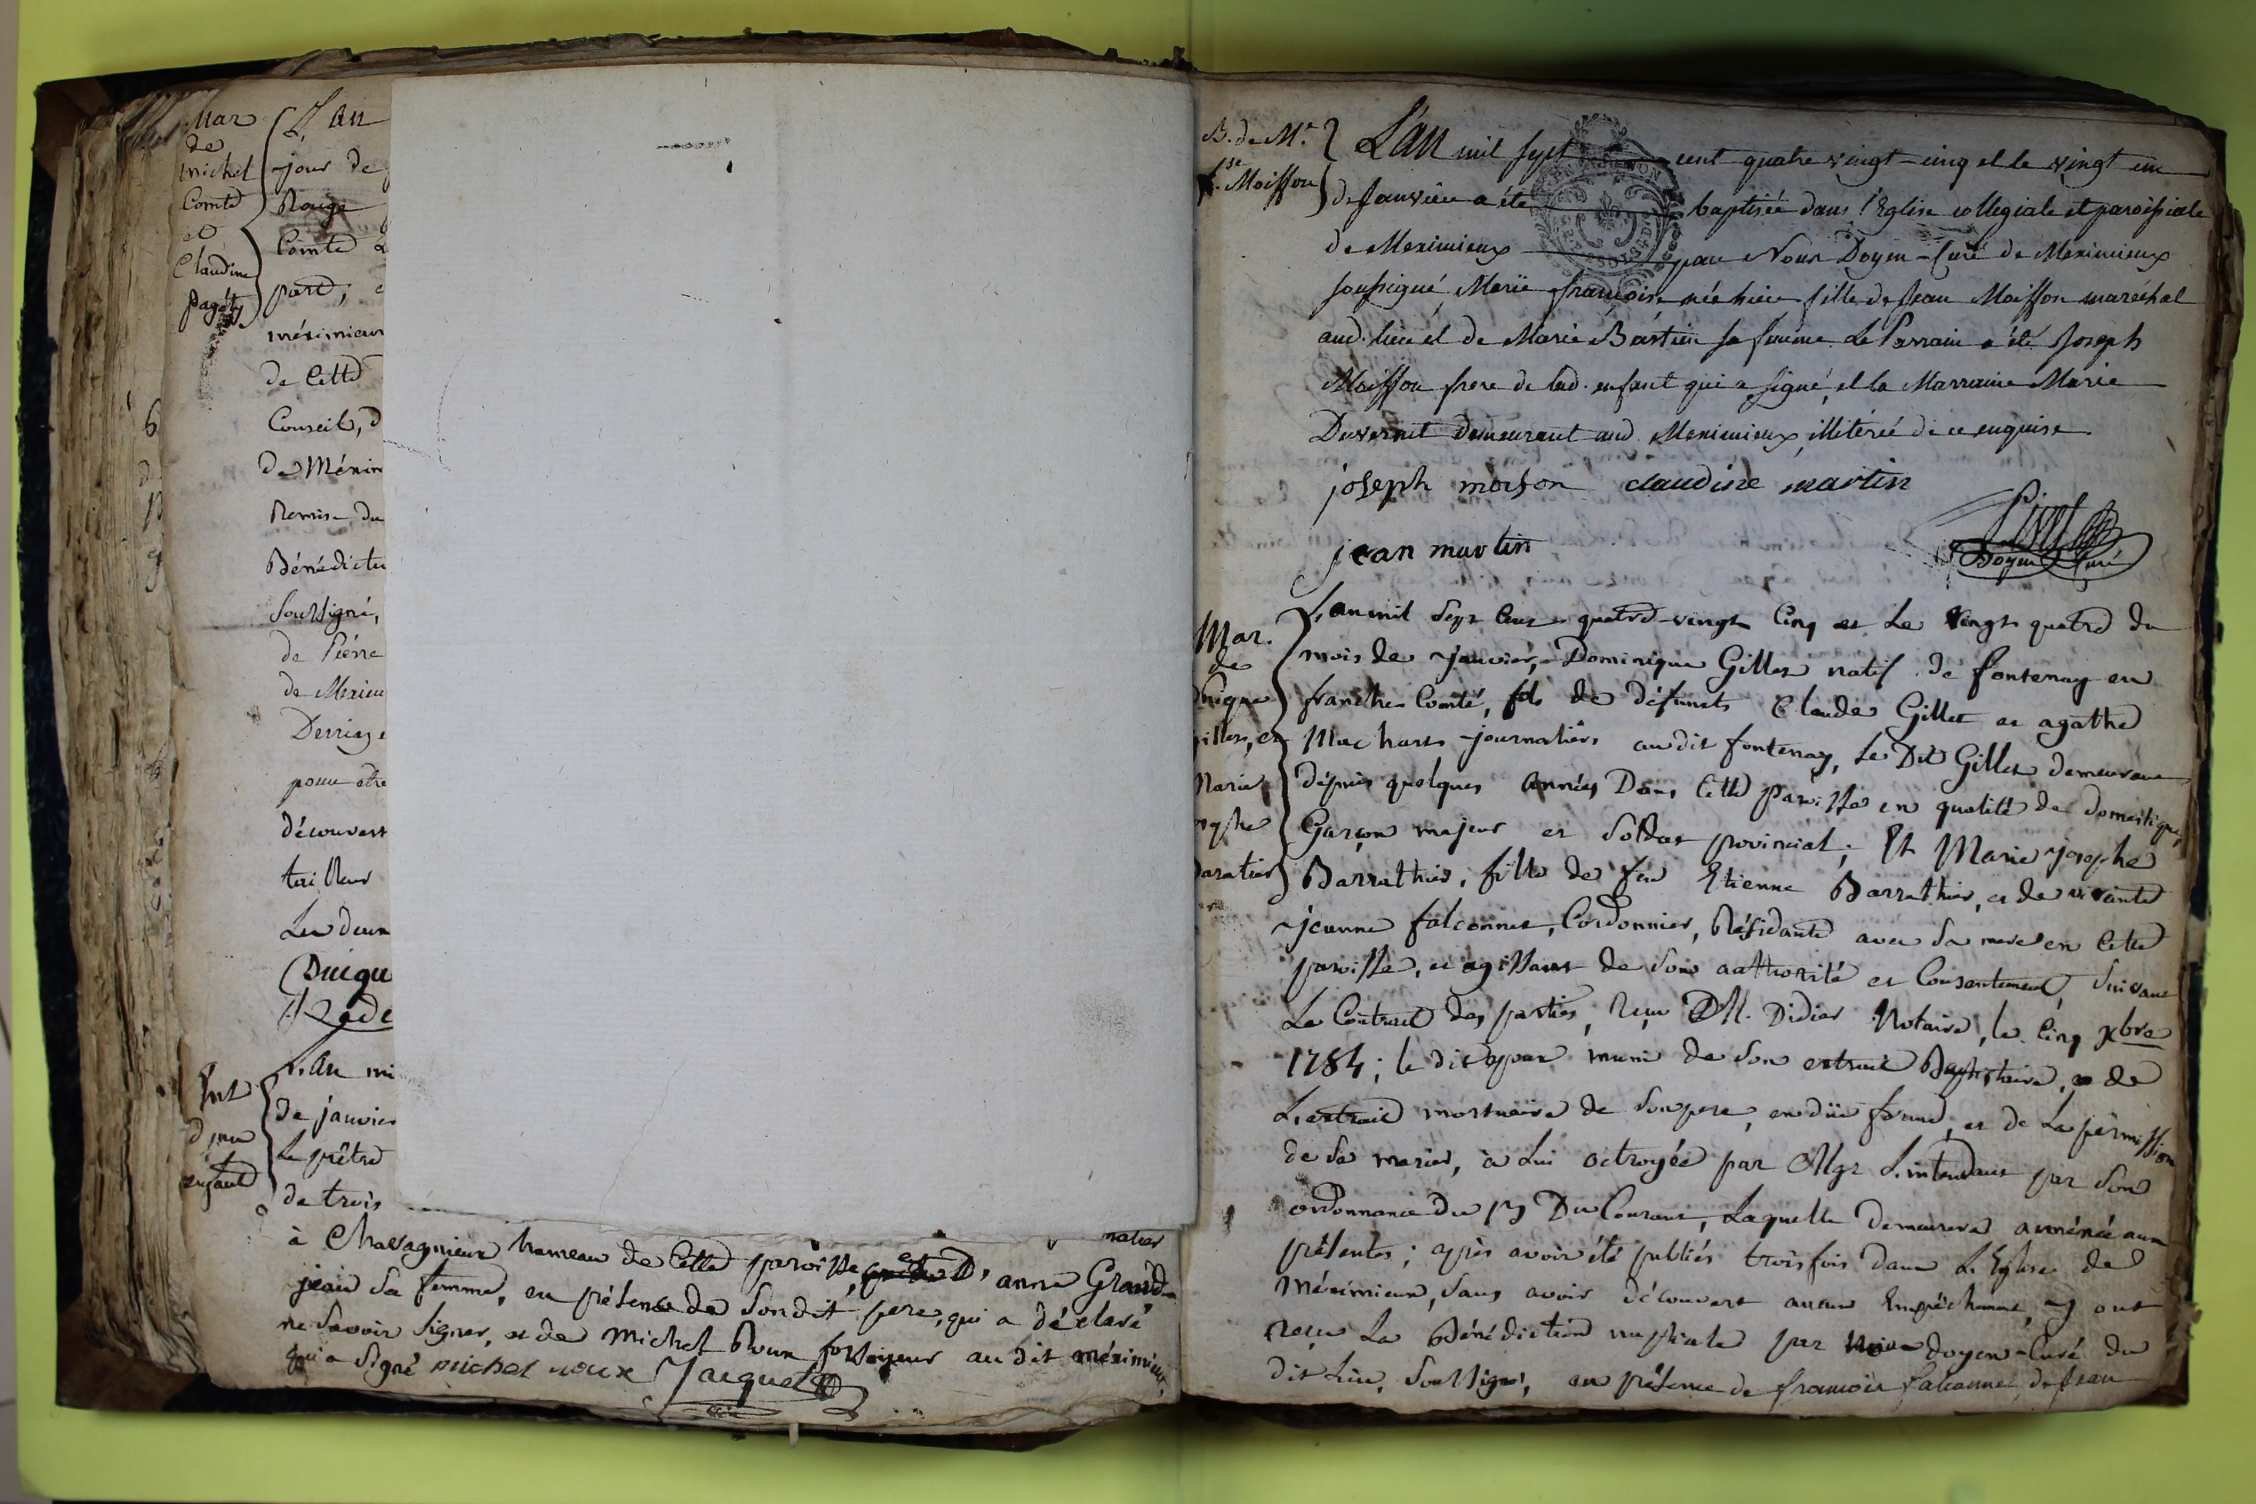 Mar
de
michel
Comte
et
Claudine
pagéts
L'an
jour de
Rouge
Comte
part,
méximieux
de Cette
Conseil, d
de Méxim
Remise du
Bénédicti
Soussigné,
de Piérre
de Mexim
Derriaz
pour etre
découvert
tailleur
Les deux
L'an mi
Ent
d'un
enfant
de janvier
Le prêtre
de trois
à Chavagnieux hameau de Cette paroisse, et d'anne Grand
jean Sa femme, en présence de Sondit pere, qui a déclaré
ne Savoir Signer, et de Michel Roux fossoyeur au dit méximieux,
qui a Signé michel roux Jacquet
B. de M.e
f.se Moisson
L'an mil sept cent quatre vingt-cinq et le vingt un
de Janvier a été baptisée dans l'Eglise collegiale et paroissiale
de Meximieux par Nous Doyen-Curé de Meximieux
soussigné, Marie françoise née hier fille de Jean Moisson maréchal
aud. lieu et de Marie Bastien sa femme. Le Parrain a été Joseph
Moisson frere de lad. enfant qui a signé, et la Marraine Marie
Duvernet demeurant aud. Meximieux, illitérée de ce enquise
joseph moison claudine martin
jean martin
Doyen Curé
Mar.
de
Gilles, et
Marie
L'an mil Sept Cent quatre-vingt Cinq et Le vingt quatre du
mois de janvier, Dominique Gilles natif de fontenay en
franche Comté, fils de défunts Claude Gillet et agathe
journaliers audit fontenay, Le Dit Gillet demeurant
dépuis quelques années Dans Cette paroisse en qualité de domestique,
Garçon majeur et Soldat provincial; Et Marie josephe
Barrathier, fille de feu Etienne Barrathier, et de vivante
jeanne falconnet, Cordonnier, Résidante avec Sa mere en Cette
paroisse, et agissant de Son authorité et Consentement, Suivant
Le Contract des parties, reçu M. Didier Notaire, le Cinq xbre
1784; le dit époux muni de Son extrait Baptistaire, et de
L'extrait mortuaire de Son pere, en düe forme, et de La permission
de Se marier, à Lui octroyée par Mgr L'intendant par Son
ordonnance du 17 Du Courant, Laquelle demeurera annéxée aux
présentes; après avoir été publiés trois fois dans L'Eglise de
Méximieux, Sans avoir découvert aucun Empéchement, y ont
reçu La Bénédiction nuptiale par Doyen-Curé du
dit Lieu, Soussigné, en présence de francois falconnet, de Jean